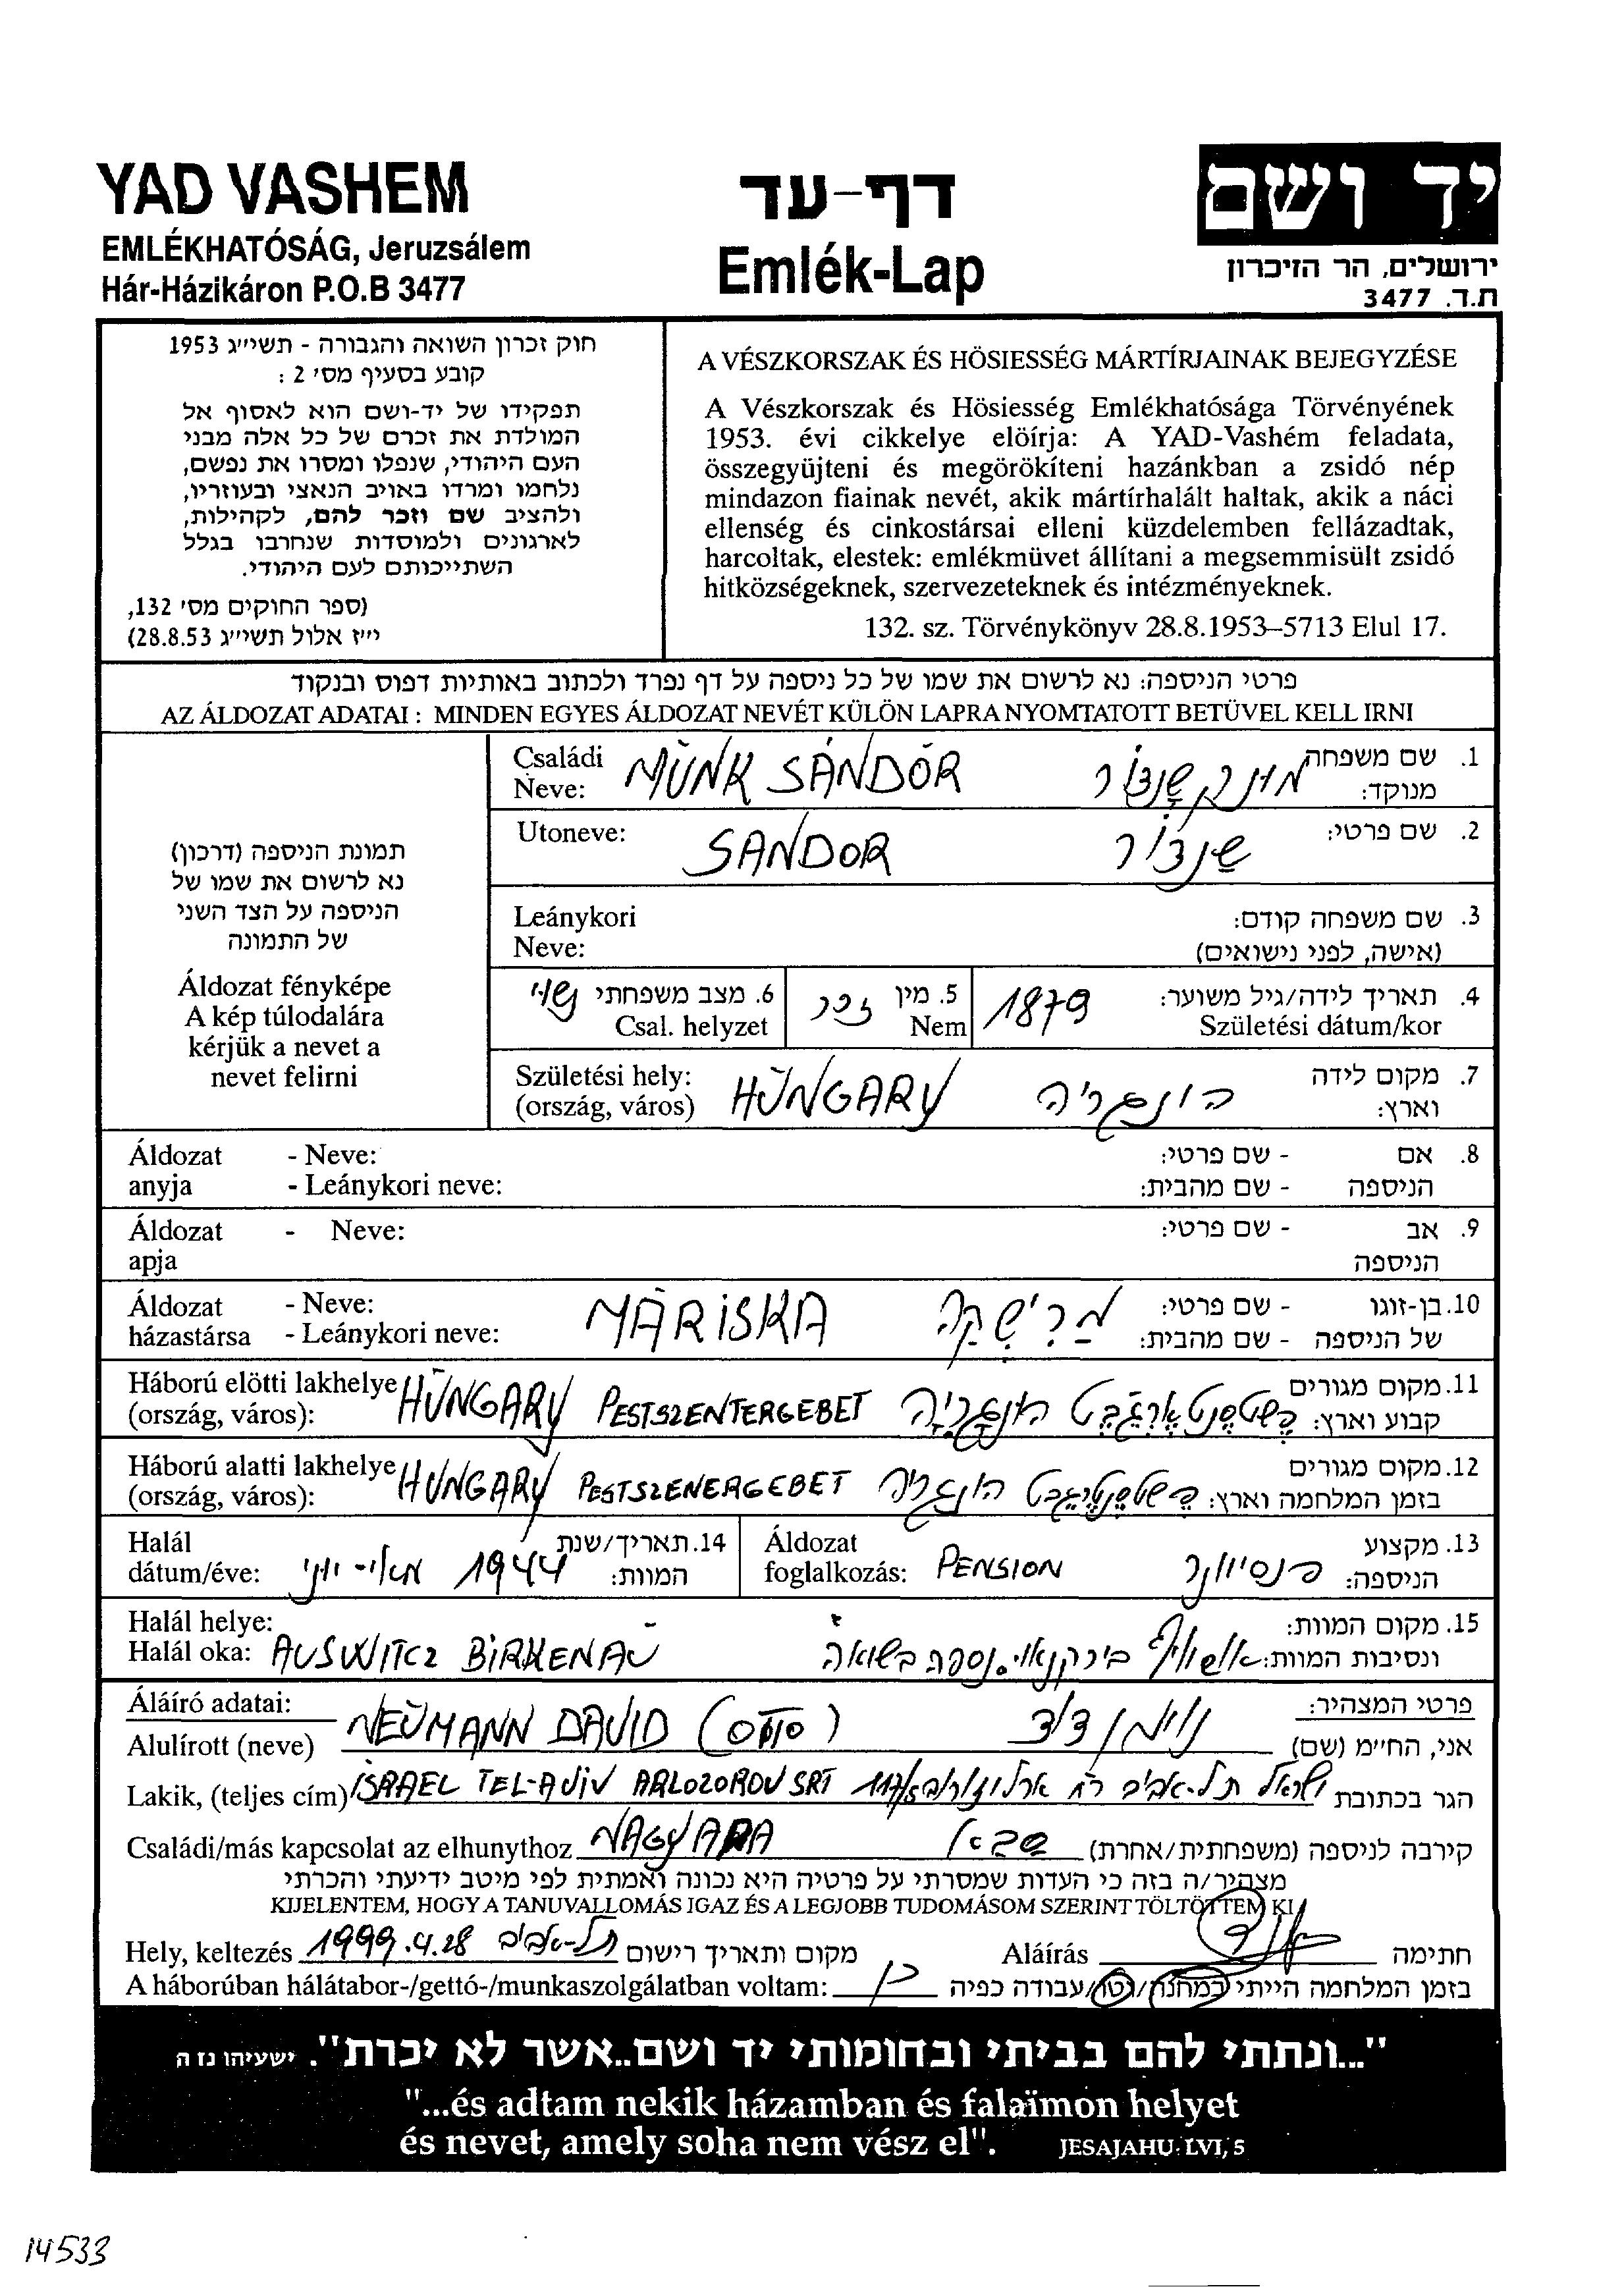 YAD VASHEM
EMLÉKHATÓSÁG, Jeruzsálem
Hár-Házikáron P.O.B 3477
דף-עד
Emlék-Lap
יד ושם
ירושלים, הר הזיכרון
ת.ד. 3477
חוק זכרון השואה והגבורה - תשי״ג 1953
קובע בסעיף מס׳ 2 :
תפקידו של יד-ושם הוא לאסוף אל
המולדת את זכרם של כל אלה מבני
העם היהודי, שנפלו ומסרו את נפשם,
נלחמו ומרדו באויב הנאצי ובעוזריו,
ולהציב שם וזכר להם, לקהילות,
לארגונים ולמוסדות שנחרבו בגלל
השתייכותם לעם היהודי.
(ספר החוקים מס׳ 132,
י״ז אלול תשי״ג 28.8.53)
A VÉSZKORSZAK ÉS HÖSIESSÉG MÁRTÍRJAINAK BEJEGYZÉSE
A Vészkorszak és Hösiesség Emlékhatósága Törvényének
1953. évi cikkelye elöírja: A YAD-Vashém feladata,
összegyüjteni és megörökíteni hazánkban a zsidó nép
mindazon fiainak nevét, akik mártírhalált haltak, akik a náci
ellenség és cinkostársai elleni küzdelemben fellázadtak,
harcoltak, elestek: emlékmüvet állítani a megsemmisült zsidó
hitközségeknek, szervezeteknek és intézményeknek.
132. sz. Törvénykönyv 28.8.1953–5713 Elul 17.
פרטי הניספה: נא לרשום את שמו של כל ניספה על דף נפרד ולכתוב באותיות דפוס ובנקוד
AZ ÁLDOZAT ADATAI : MINDEN EGYES ÁLDOZAT NEVÉT KÜLÖN LAPRA NYOMTATOTT BETÜVEL KELL IRNI
תמונת הניספה (דרכון)
נא לרשום את שמו של
הניספה על הצד השני
של התמונה
Áldozat fényképe
A kép túlodalára
kérjük a nevet a
nevet felirni
Családi Neve: MUNK SÁNDOR מונק שָנדור 1. שם משפחה מנוקד:
Utoneve: SANDOR שַנדור 2. שם פרטי:
Leánykori Neve: 3. שם משפחה קודם: (אישה, לפני נישואים)
6. מצב משפחתי נשוי Csal. helyzet
5. מין זכר Nem
1879 4. תאריך לידה/גיל משוער: Születési dátum/kor
Születési hely: (ország, város) HUNGARY הונגריה 7. מקום לידה וארץ:
Áldozat anyja - Neve: - Leánykori neve: 8. אם הניספה - שם פרטי: - שם מהבית:
Áldozat apja - Neve: 9. אב הניספה - שם פרטי:
Áldozat házastársa - Neve: - Leánykori neve: MARISKA מַרִישְקָה 10. בן-זוגו של הניספה - שם פרטי: - שם מהבית:
Háború elötti lakhelye (ország, város): HUNGARY PESTSZENTERGEBET הונגריה 11. מקום מגורים קבוע וארץ:
Háború alatti lakhelye (ország, város): HUNGARY PESTSZENERGEBET הונגריה 12. מקום מגורים בזמן המלחמה וארץ:
Halál dátum/éve: מאי-יוני 1944 14. תאריך/שנת המוות:
Áldozat foglalkozás: PENSION פנסיונר 13. מקצוע הניספה:
Halál helye: Halál oka: AUSWITCZ BIRKENAU אושוויץ בירקנאו. נספה בשואה 15. מקום המוות: ונסיבות המוות:
Áláíró adatai: פרטי המצהיר:
Alulírott (neve) NEUMANN DAVID (OTTO) נוימן דוד אני, החי״מ (שם)
Lakik, (teljes cím) ISRAEL TEL-AVIV ARLOZOROV SRT 117/5 ישראל תל-אביב רח ארלוזורוב הגר בכתובת
Családi/más kapcsolat az elhunythoz NAGYAPA סבא קירבה לניספה (משפחתית/אחרת)
מצהיר/ה בזה כי העדות שמסרתי על פרטיה היא נכונה ואמתית לפי מיטב ידיעתי והכרתי
KIJELENTEM, HOGY A TANUVALLOMÁS IGAZ ÉS A LEGJOBB TUDOMÁSOM SZERINT TÖLTÖTTEM KI
Hely, keltezés 1999.4.28 תל-אביב מקום ותאריך רישום Aláírás חתימה
A háborúban hálátabor-/gettó-/munkaszolgálatban voltam: כן בזמן המלחמה הייתי במחנה/גטו/עבודה כפיה
"...ונתתי להם בביתי ובחומותי יד ושם..אשר לא יכרת". ישעיהו נז ה
"...és adtam nekik házamban és falaïmon helyet
és nevet, amely soha nem vész el". JESAJAHU: LVI, 5
14533